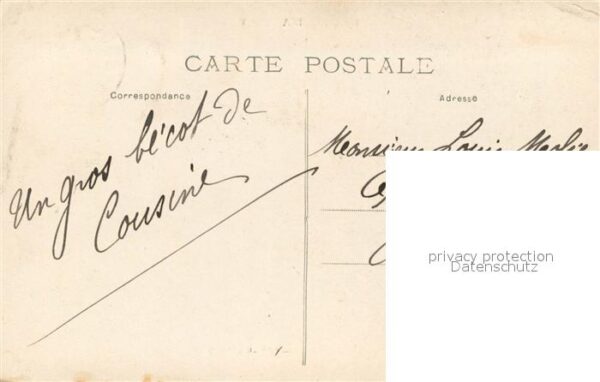 CARTE POSTALE
Correspondance
Adresse
Un gros bécot de
Cousine
Monsieur Louis
privacy protection
Datenschutz